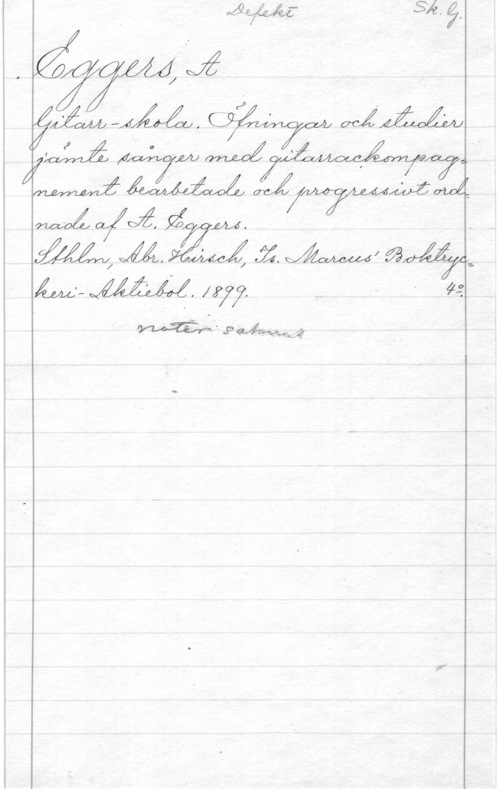 Defekt Sk. G.
Eggers, A
Gitarr-skola. Öfningar och studier
jämte sånger med gitarrackompag=
nement bearbetade och progressivt ord=
nade af A. Eggers.
Sthlm, Abr. Hirsch, Is. Marcus' Boktryc=
keri-Aktiebol. 1899. 4º.
noter saknas